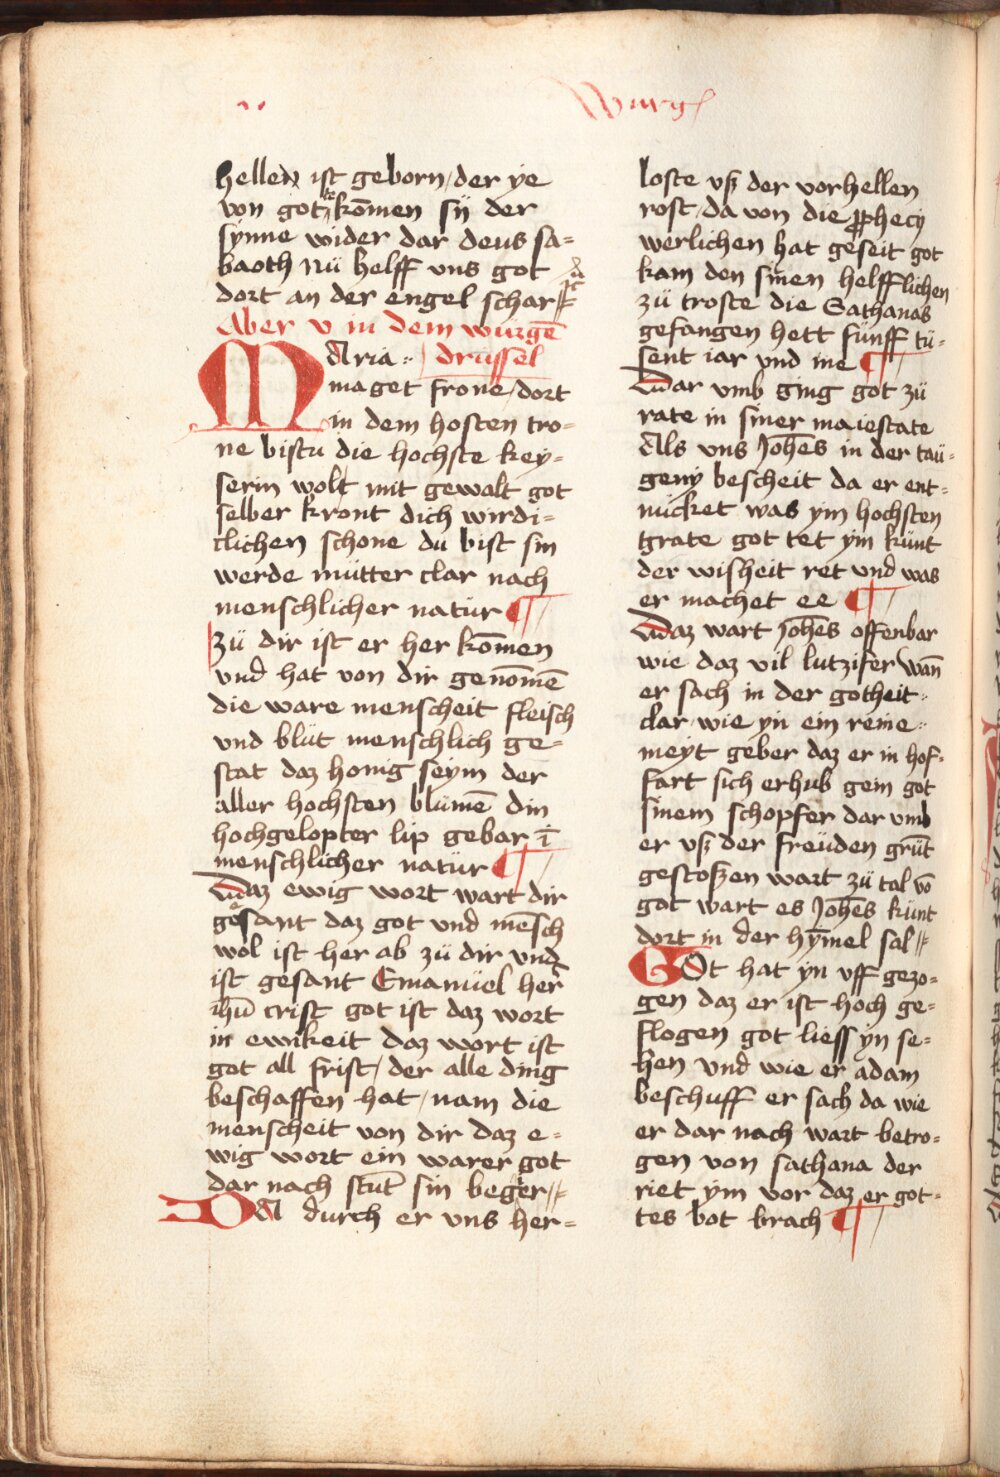 v Wurg
hellen ist geborn / der ye
von got ist kōmen sij der
synne wider dar deus sa=
baoth Nü helff uns got
dort an der engel schar
Aber v in dem würgē
drüssel
MAria
maget frone / dort
in dem hosten tro=
ne bistu die hochste key=
serin wolt mit gewalt got
selber kront dich wirdi=
clichen schone du bist sin
werde mütter clar nach
menschlicher natür ¶
zü dir ist er her kōmen
und hat von dir genōmē
die ware menscheit fleisch
und blüt menschlich ge=
stat daz honig seym der
aller hochsten blümē din
hochgelopter lip gebar ī
menschlicher natür ¶
Daz ewig wort wart dir
gesant daz got und mēsch
wol ist her ab zü dir und
ist gesant Emanüel her
ihū crist got ist daz wort
in ewikeit daz wort ist
got all frist / der alle ding
beschaffen hat / nam die
menscheit von dir daz e=
wig wort ein warer got
dar nach stūt sin beger
DA durch er uns her=
loste uß der vorhellen
rost / da von die prophecij
werlichen hat geseit got
kam den sinen helfflichen
zü troste die Sathanas
gefangen hett fünff tü=
sent iar und me ¶
Dar umb ging got zü
rate in siner maiestate
Als uns Johēs in der taü=
geny bescheit da er ent=
nücket was ym hochsten
grate got tet ym künt
der wisheit ret und was
er machet ee ¶
Daz wart Johēs offenbar
wie daz vil lutzifer wan̄
er sach in der gotheit
clar wie yn ein reine
meyt geber daz er in hof=
fart sich erhub gein got
sinem schopfer dar umb
er uß der freüden grūt
gestoßen wart zü tal vō
got wart es Johēs künt
dort in der hȳmel sal
GOt hat yn uff gezo=
gen daz er ist hoch ge=
flogen got liess yn se=
hen und wie er adam
beschuff er sach da wie
er dar nach wart betro=
gen von sathana der
riet ym vor daz er got=
tes bot brach ¶